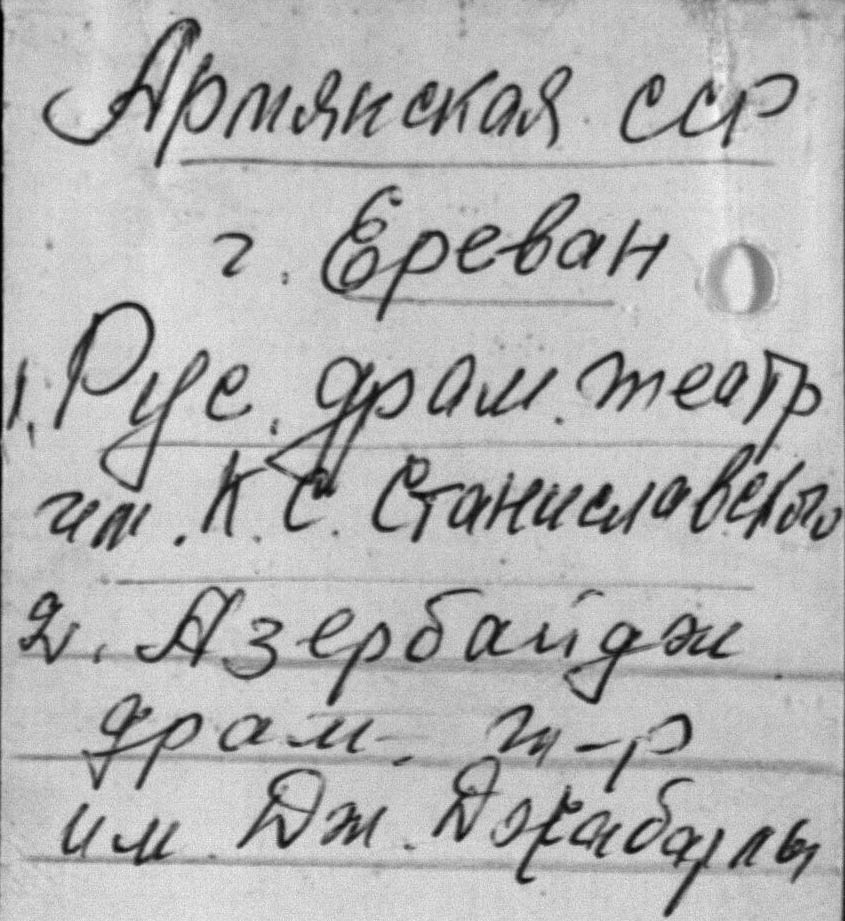 Армянская ССР
г. Ереван
1. Рус. драм. театр
им. К. С. Станиславского
2. Азербайдж
драм. т-р
им. Дж. Джабарлы